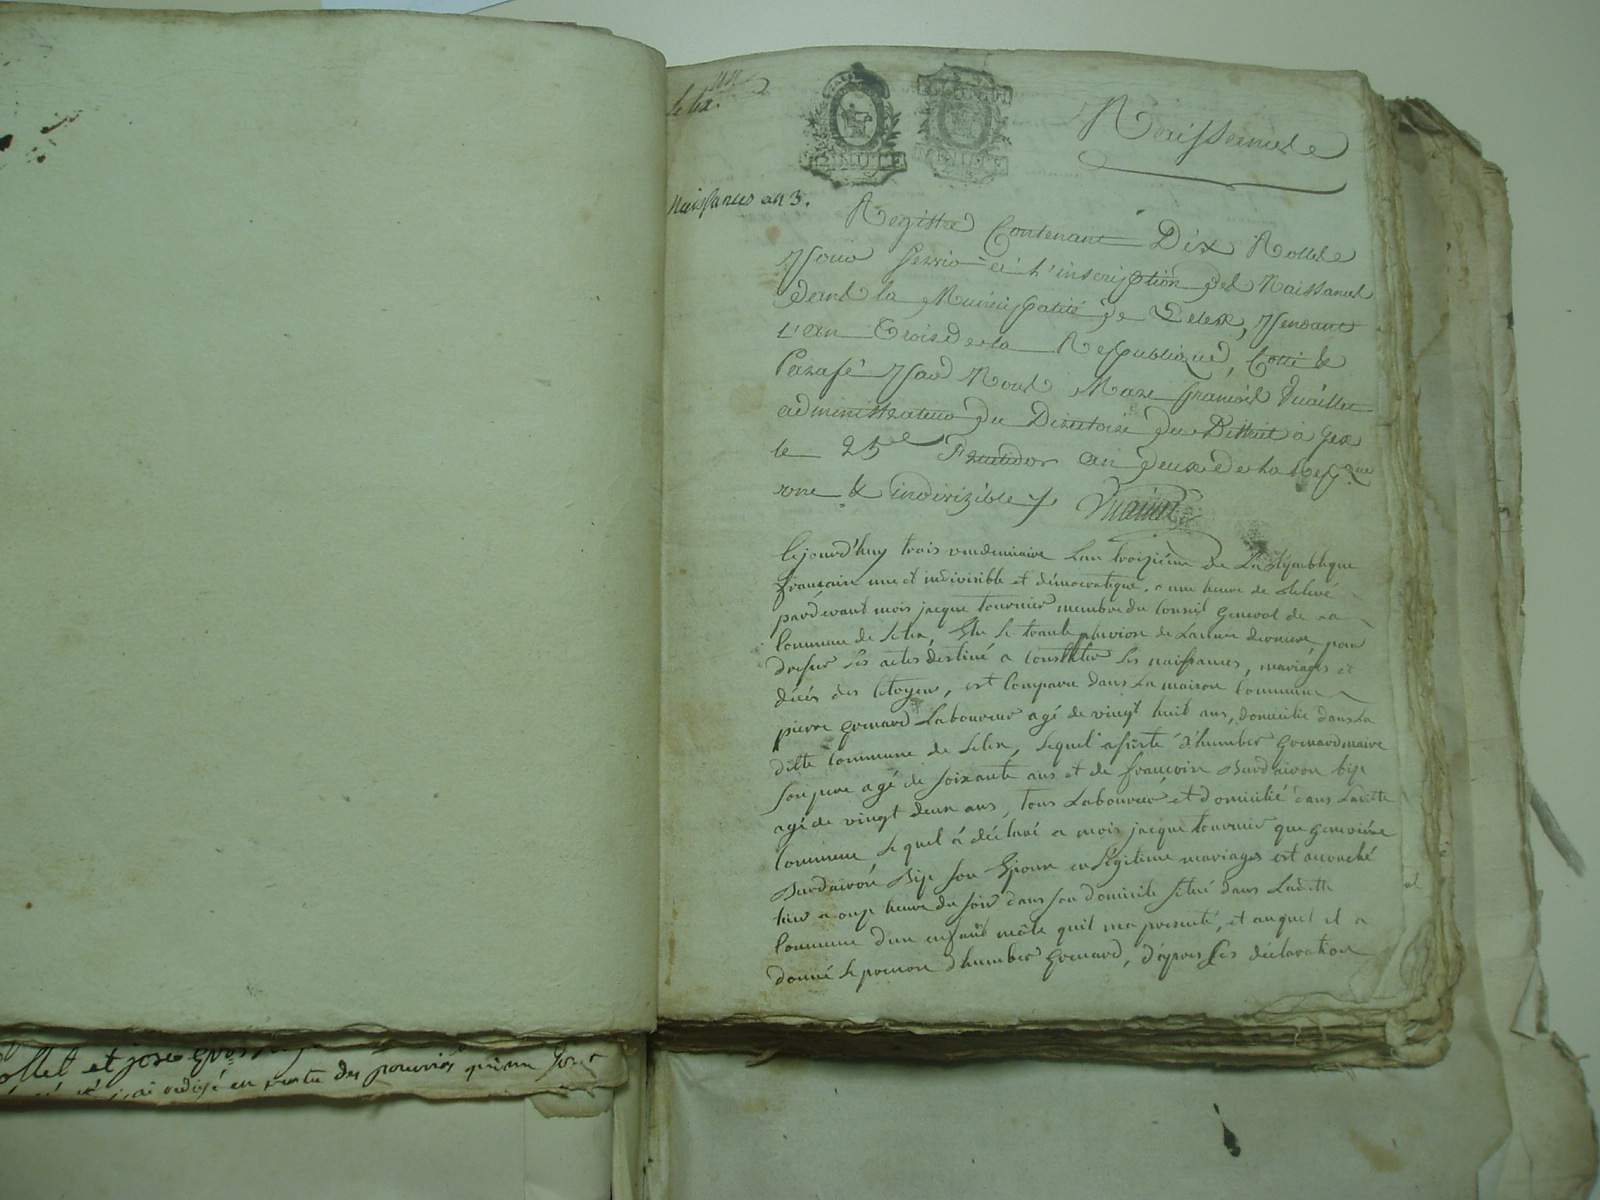 Lelex.
Naissances
Naissances an 3.
Registre Contenant Dix Rolles
pour servir à l'inscription des Naissances
dans la Municipalité de Lelex, pendant
L'an Trois de la Republique, Cotté &
Parafé par Nous Marc François Vuaillet
administrateur du Directoire du District à Gex
le 25e Fructidor an deux de la Rep.que
une & indivizible /.
Cejourd'huy trois vendemiaire Lan troizieme de La République
francaise une et indivisible et démocratique, a une heure de Relevé
pardevant mois jacque tournier membre du Conseil General de la
Commune de Lelex, Elu Le trante pluviose de Lannee derniere pour
dresser Les actes destiné a constater Les naissances, mariages et
décès des Citoyens, est Comparu dans La maison Commune
pierre grenard Laboureur agé de vingt huit ans, domicilié dans La
ditte Commune de Lelex, Lequel assisté d'humber Grenard maire
son pere agé de soixante ans et de françoise
agé de vingt deux ans, tous Laboureur et domicilié dans Laditte
Commune Lequel à déclaré a mois jacque tournier que Genevieve
son Epouse en Légitime mariages est accouché
hier a onze heure du soir dans son domicile situé dans Laditte
Commune d'un enfant mâle quil ma presenté, et auquel il a
donné Le prenom d'humber Grenard, d'après Les déclaration
et jose
rédigé en vertu des pouvoirs qui me sont